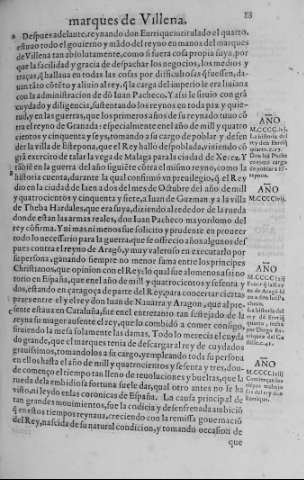 marques de Villena.
83
Despues adelante, reynando don Enrrique intitulado el quarto,
estuuo todo el gouierno y mãdo del reyno en manos del marques
de Villena tan absolutamente, como si fuera cosa propia suya, por
que la facilidad y gracia de despachar los negocios, los medios y
traças, q̃ hallaua en todas las cosas por dificultosas q̃ fuessen, da-
uan tãto cõtẽto y aliuio al rey, q̃ la carga del imperio le era liuiana
con la administracion de dõ Iuan Pacheco. Y assi le siruio con grã
cuydado y diligencia, sustentando los reynos en toda paz y quie-
tud, y en las guerras, que los primeros años de su reynado tuuo cõ
tra el reyno de Granada: especialmente en el año de mill y quatro
cientos y cinquenta y seys, tomando a su cargo de poblar y defen
der la villa de Estepona, que el Rey hallo despoblada, viniendo cõ
grã exercito de talar la vega de Malaga para la ciudad de Xerez. Y
en la guerra del año siguiẽte cõtra el mismo reyno, como la
historia cuenta, durante la qual confirmò vn preuilegio, q̃ el Rey
dio en la ciudad de Iaen a dos del mes de Octubre del año de mill
y quatrocientos y cinquenta y siete, a Iuan de Guzman y a la villa
de Theba Hardales, que era suya, diziendo alderredor de la rueda
donde estàn las armas reales, don Iuan Pacheco mayordomo del
rey cõfirma. Y ni mas ni menos fue solicito y prudente en proueer
todo lo necessario para la guerra, que se offrecio años algunos des
pues contra el reyno de Aragõ, y muy valeroso en executarlo por
su persona, ganando siempre no menos fama entre los principes
Christianos, que opinion con el Rey: lo qual fue alomenos assi no
torio en España, que en el año de mill y quatrocientos y sesenta y
dos, estando en çaragoça de parte del Rey para concertar ciertas
pazes entre el y el rey don Iuan de Nauarra y Aragon, que al pre-
sente estaua en Cataluña, fue en el entretanto tan festejado de la
reyna su muger ausente el rey, que lo combidò a comer consigo,
siruiendo la mesa solamente las damas. Todo lo merecia el cuyda
do grande, que el marques tenia de descargar al rey de cuydados
grauissimos, tomandolos a su cargo, y empleando toda su persona
en ellos hasta el año de mill y quatrocientos y sesenta y tres, don-
de començo el tiempo tan lleno de reuoluciones y bueltas, que la
rueda dela embidiosa fortuna suele dar, qual otro antes no se ha
visto, ni leydo en las coronicas de España. La causa principal de
tan grandes mouimientos, fue la codicia y desenfrenada ambiciõ
q̃ en estos tiempos reynaua, creciendo con la remissa gouernaciõ
del Rey, nascida de su natural condicion, y tomando occasiõ de
que
AÑO
AÑO
AÑO
AÑO